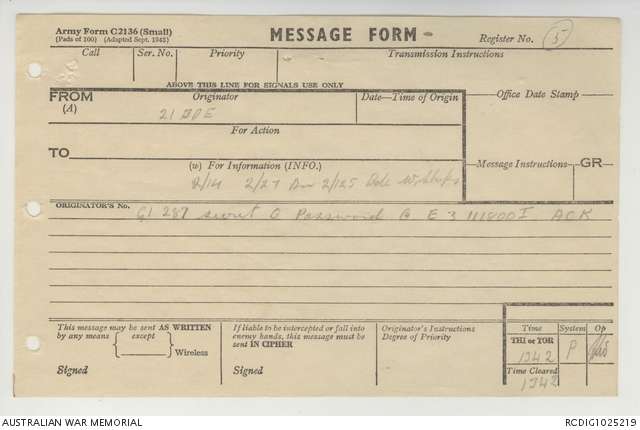 Army Form C2136 (Small)
(Pads of 100) (Adapted Sept. 1943)
MESSAGE FORM
Register No. 5
Call Ser. No. Priority Transmission Instructions
ABOVE THIS LINE FOR SIGNALS USE ONLY
FROM
(A)
Originator
21 BDE
Date—Time of Origin
Office Date Stamp
For Action
TO
(w) For Information (INFO.)
Message Instructions GR
2/14 2/27 2/125
ORIGINATOR'S No.
G1 287 secret O Password E 3 111800I ACK
This message may be sent AS WRITTEN
by any means except
Wireless
Signed
If liable to be intercepted or fall into
enemy hands, this message must be
sent IN CIPHER
Signed
Originator's Instructions
Degree of Priority
Time System Op
THI or TOR
1342 P
Time Cleared
1342
AUSTRALIAN WAR MEMORIAL
RCDIG1025219